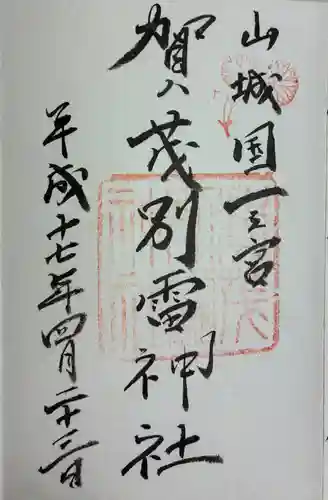 山城國一之宮
賀茂別雷神社
平成十七年四月二十三日